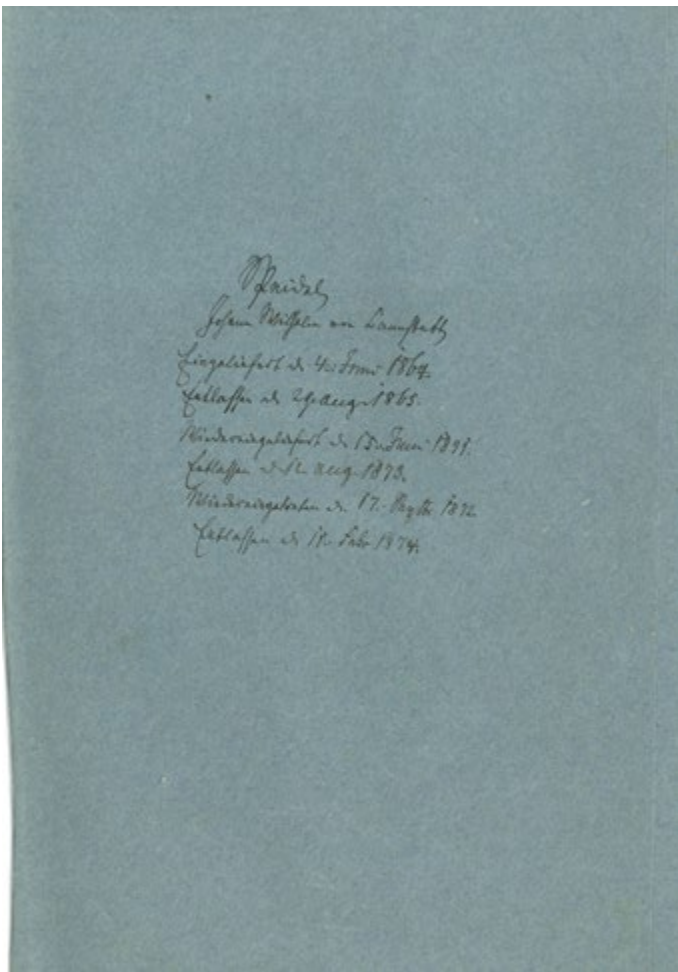 Speidel
Johann Wilhelm von Cannstatt
Eingeliefert d. 4. Juni 1864.
Entlassen d. 29. Aug. 1865.
Wiedereingeliefert d. 15. Juni
Entlassen d. 12. Aug. 1873.
Wiedereingetreten d. 17. 
Entlassen d. Febr 1874.